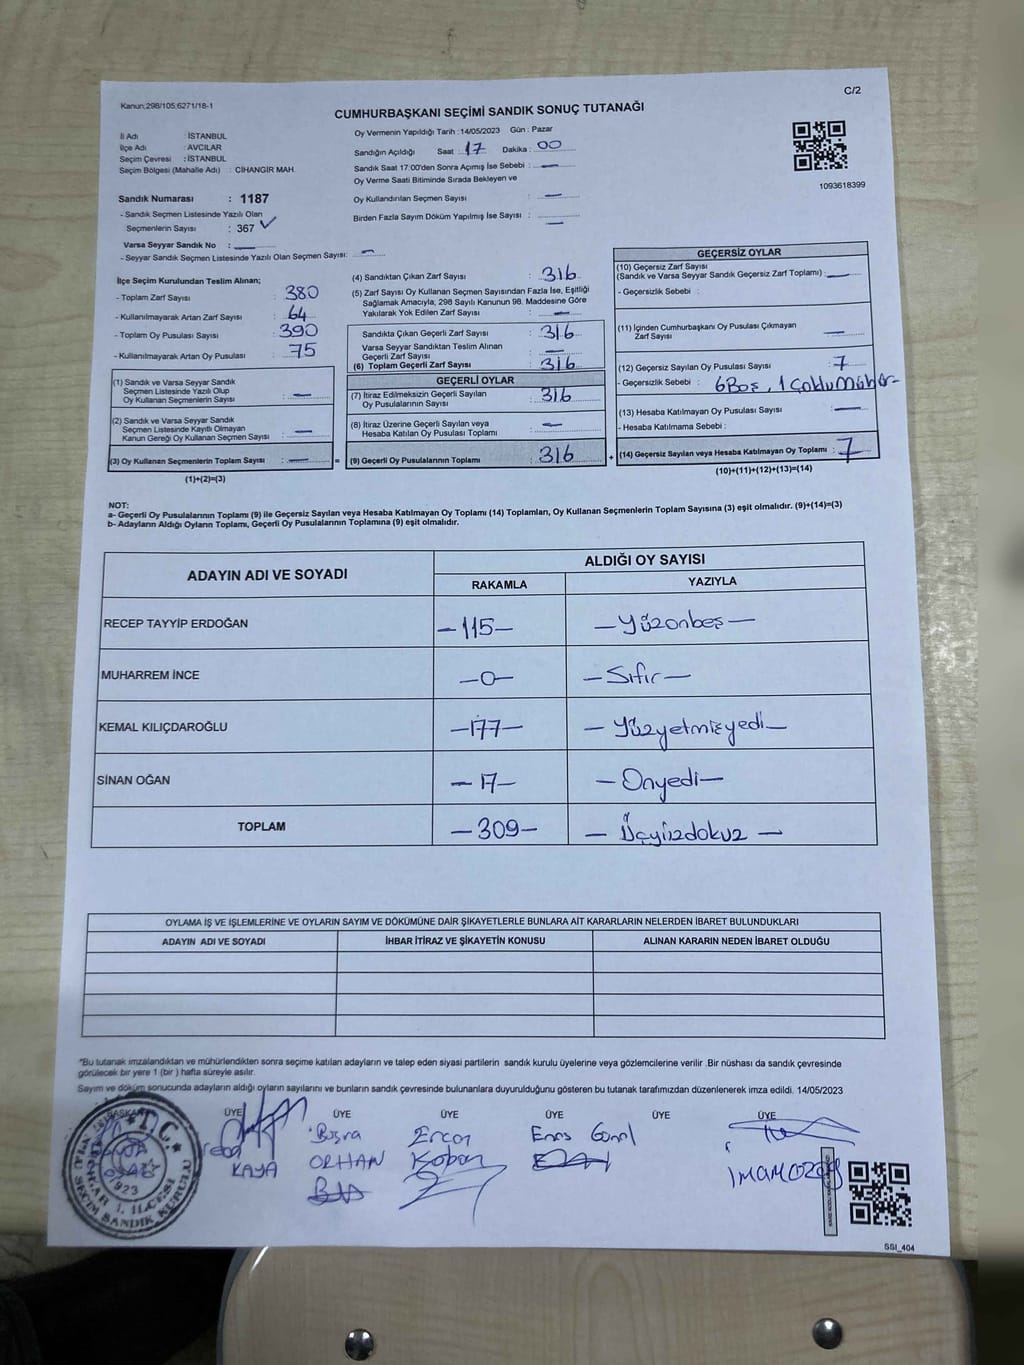 Kanun:298/105;6271/18-1
C/2
CUMHURBAŞKANI SEÇİMİ SANDIK SONUÇ TUTANAĞI
İl Adı : İSTANBUL
İlçe Adı : AVCILAR
Seçim Çevresi : İSTANBUL
Seçim Bölgesi (Mahalle Adı) : CİHANGİR MAH.
Oy Vermenin Yapıldığı Tarih :14/05/2023 Gün : Pazar
Sandığın Açıldığı Saat : 17 Dakika : 00
Sandık Saat 17:00'den Sonra Açımış İse Sebebi : —
Oy Verme Saati Bitiminde Sırada Bekleyen ve
Oy Kullandırılan Seçmen Sayısı : —
Birden Fazla Sayım Döküm Yapılmış İse Sayısı : —
1093618399
Sandık Numarası : 1187
- Sandık Seçmen Listesinde Yazılı Olan
Seçmenlerin Sayısı : 367 ✓
Varsa Seyyar Sandık No : —
- Seyyar Sandık Seçmen Listesinde Yazılı Olan Seçmen Sayısı: —
İlçe Seçim Kurulundan Teslim Alınan;
- Toplam Zarf Sayısı : 380
- Kullanılmayarak Artan Zarf Sayısı : 64
- Toplam Oy Pusulası Sayısı : 390
- Kullanılmayarak Artan Oy Pusulası : 75
(1) Sandık ve Varsa Seyyar Sandık
Seçmen Listesinde Yazılı Olup
Oy Kullanan Seçmenlerin Sayısı : —
(2) Sandık ve Varsa Seyyar Sandık
Seçmen Listesinde Kayıtlı Olmayan
Kanun Gereği Oy Kullanan Seçmen Sayısı : —
(3) Oy Kullanan Seçmenlerin Toplam Sayısı : — =
(1)+(2)=(3)
(4) Sandıktan Çıkan Zarf Sayısı : 316
(5) Zarf Sayısı Oy Kullanan Seçmen Sayısından Fazla İse, Eşitliği
Sağlamak Amacıyla, 298 Sayılı Kanunun 98. Maddesine Göre
Yakılarak Yok Edilen Zarf Sayısı : —
Sandıkta Çıkan Geçerli Zarf Sayısı : 316
Varsa Seyyar Sandıktan Teslim Alınan
Geçerli Zarf Sayısı : —
(6) Toplam Geçerli Zarf Sayısı : 316
GEÇERLİ OYLAR
(7) İtiraz Edilmeksizin Geçerli Sayılan
Oy Pusulalarının Sayısı : 316
(8) İtiraz Üzerine Geçerli Sayılan veya
Hesaba Katılan Oy Pusulası Toplamı : —
(9) Geçerli Oy Pusulalarının Toplamı : 316 +
GEÇERSİZ OYLAR
(10) Geçersiz Zarf Sayısı
(Sandık ve Varsa Seyyar Sandık Geçersiz Zarf Toplamı) : —
- Geçersizlik Sebebi :
(11) İçinden Cumhurbaşkanı Oy Pusulası Çıkmayan
Zarf Sayısı : —
(12) Geçersiz Sayılan Oy Pusulası Sayısı : 7
- Geçersizlik Sebebi : 6 Boş, 1 Çoklu Mühür
(13) Hesaba Katılmayan Oy Pusulası Sayısı : —
- Hesaba Katılmama Sebebi :
(14) Geçersiz Sayılan veya Hesaba Katılmayan Oy Toplamı : 7
(10)+(11)+(12)+(13)=(14)
NOT:
a- Geçerli Oy Pusulalarının Toplamı (9) ile Geçersiz Sayılan veya Hesaba Katılmayan Oy Toplamı (14) Toplamları, Oy Kullanan Seçmenlerin Toplam Sayısına (3) eşit olmalıdır. (9)+(14)=(3)
b- Adayların Aldığı Oyların Toplamı, Geçerli Oy Pusulalarının Toplamına (9) eşit olmalıdır.
ADAYIN ADI VE SOYADI
ALDIĞI OY SAYISI
RAKAMLA YAZIYLA
RECEP TAYYİP ERDOĞAN —115— —Yüzonbeş—
MUHARREM İNCE —0— —Sıfır—
KEMAL KILIÇDAROĞLU —177— —Yüzyetmişyedi—
SİNAN OĞAN —17— —Onyedi—
TOPLAM —309— —Üçyüzdokuz—
OYLAMA İŞ VE İŞLEMLERİNE VE OYLARIN SAYIM VE DÖKÜMÜNE DAİR ŞİKAYETLERLE BUNLARA AİT KARARLARIN NELERDEN İBARET BULUNDUKLARI
ADAYIN ADI VE SOYADI İHBAR İTİRAZ VE ŞİKAYETİN KONUSU ALINAN KARARIN NEDEN İBARET OLDUĞU
*Bu tutanak imzalandıktan ve mühürlendikten sonra seçime katılan adayların ve talep eden siyasi partilerin sandık kurulu üyelerine veya gözlemcilerine verilir .Bir nüshası da sandık çevresinde
görülecek bir yere 1 (bir ) hafta süreyle asılır.
Sayım ve döküm sonucunda adayların aldığı oyların sayılarını ve bunların sandık çevresinde bulunanlara duyurulduğunu gösteren bu tutanak tarafımızdan düzenlenerek imza edildi. 14/05/2023
BAŞKAN ÜYE ÜYE ÜYE ÜYE ÜYE ÜYE
KAYA
Büşra
ORHAN
Ercan
Koban
Enes
T.C.
1923
SSI_404